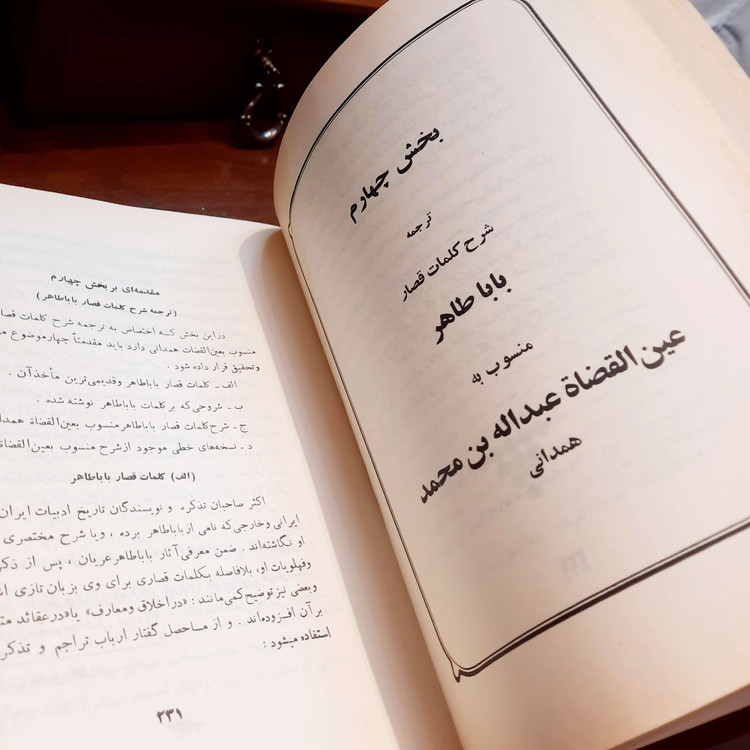 بخش چهارم
ترجمه
شرح کلمات قصار
بابا طاهر
منسوب به
عین القضاة عبداله بن محمد
همدانی
مقدمه‌ای بر بخش چهارم
(ترجمه شرح کلمات قصار باباطاهر)
دراین بخش کـه اختصاص به ترجمه شرح کلمات قصار
منسوب بعین‌القضات همدانی دارد باید مقدمتاً چهارموضوع
وتحقیق قرار داده شود .
الف - کلمات قصار باباطاهر وقدیمی‌ترین مأخذآن .
ب - شروحی‌که بر کلمات باباطاهر نوشته شده .
ج - شرح‌کلمات قصار باباطاهر منسوب بعین‌القضاة
د - نسخه‌های خطی موجود ازشرح منسوب بعین‌القضاة
(الف) کلمات قصار باباطاهر
اکثر صاحبان تذکره و نویسندگان تاریخ ادبیات ایران
ایرانی وخارجی‌که نامی ازباباطاهر برده ، وبا شرح مختصری
او نگاشته‌اند . ضمن معرفی‌آثار باباطاهرعریان ، پس از
وفهلویات او، بلافاصله بکلمات قصاری برای وی بزبان تازی
وبعضی نیزتوضیح‌کمی‌مانند : «دراخلاق ومعارف» یا«درعقائد
برآن افزوده‌اند . و از ماحصل گفتار ارباب تراجم و
استفاده میشود :
۲۳۱